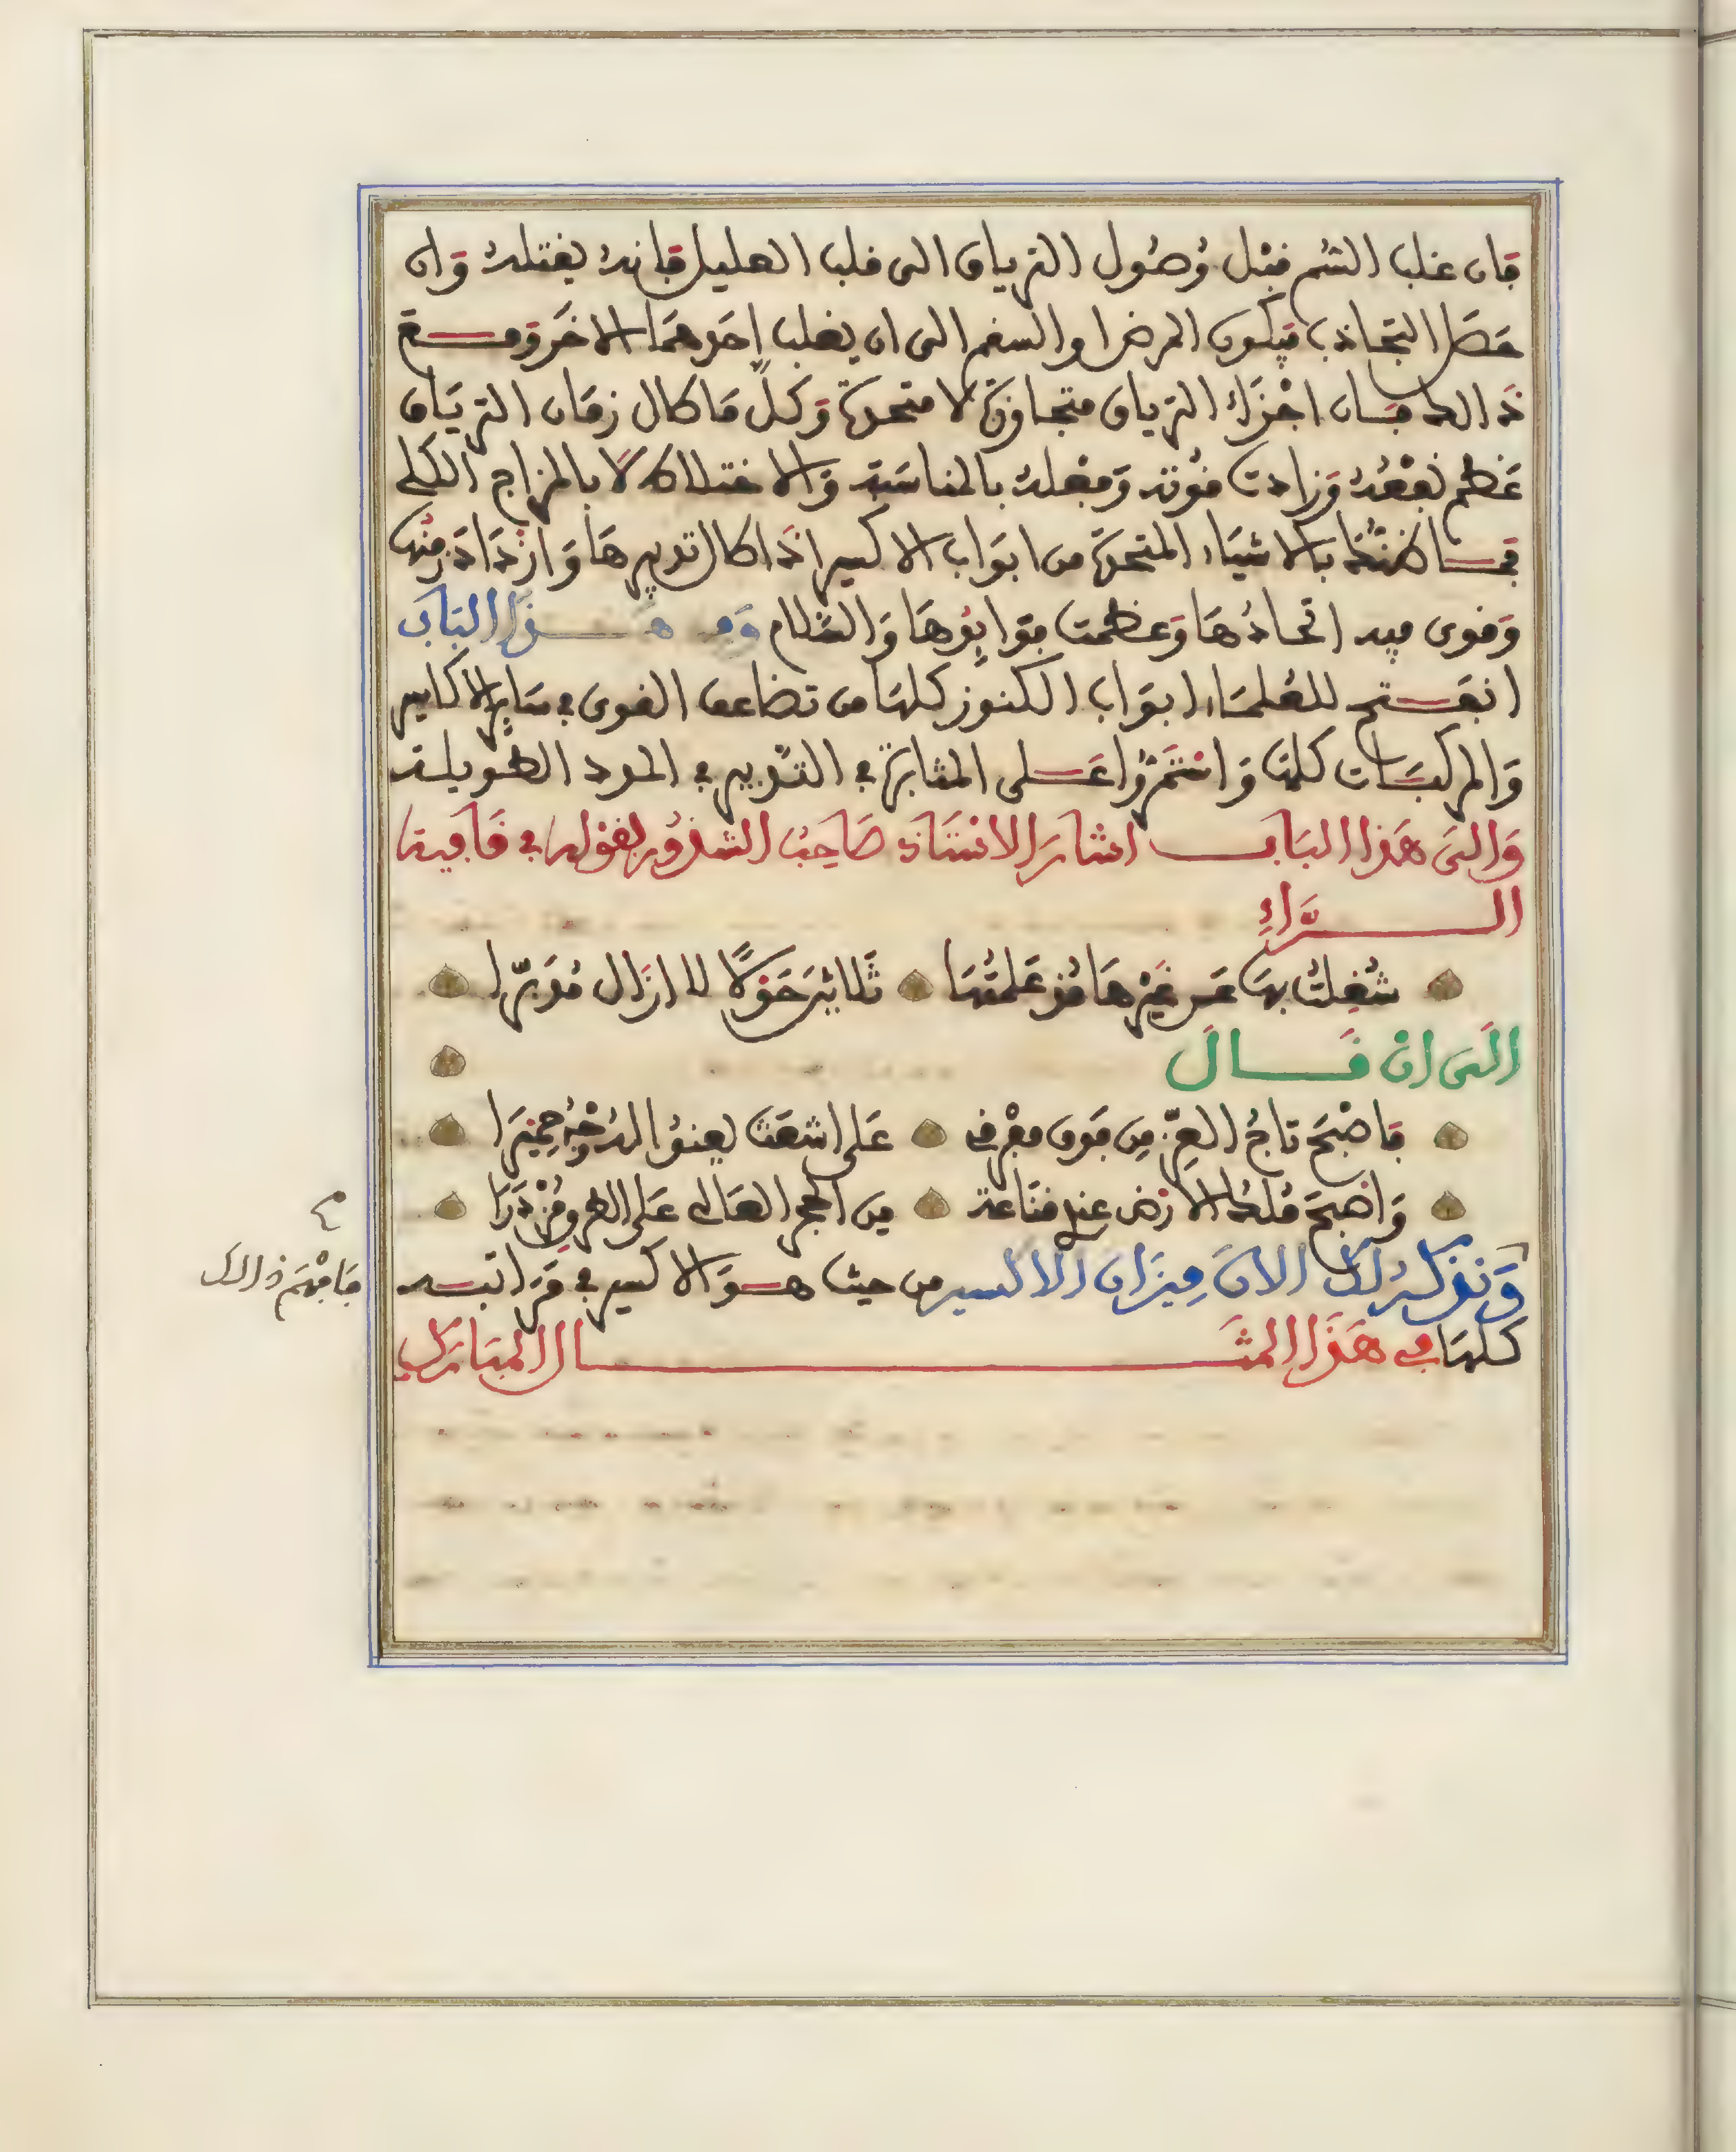 فان غلب السم قبل وصول الترياق الى قلب العليل فانه يقتله وان
حصل التجاذب فيكون المرض والسقم الى ان يغلب احدهما الاخر ومع
ذالك فان اجزاء الترياق متجاورة لا متحدة وكل ما طال زمان الترياق
عظم نفعه وزادت قوته وفعله بالمناسبة والاختلاط لا بالمزاج الكلي
فما ظنك بالاشياء المتحدة من ابواب الاكسير اذا طال تدبيرها وازداد زمنها
وقوى فيه اتحادها وعظمت فوايدها والسلام ومن هذا الباب
انفتح للعلماء ابواب الكنوز كلها من تضاعف القوى في ساير الاكاسير
والمركبات كلها واستمروا على المثابرة في التدبير في المدد الطويلة
وَالى هَذا البَاب اشارَ الاسْتَاذ صَاحِبُ الشذورِ بقوله في قَافية
الــرَّاءِ
شُغِلتُ بهَا عَن غيرِهَا مُذ عَلمتُهَا ثَلاثينَ حَولاً لا ازَال مُدَبّرا
الَى انْ قَــالَ
فاصْبحَ تاجُ العِزّ مِن فَوق مفْرقي عَلى اشعَث يعنو له وجْهُ حِميَرا
وَاصْبحَ مُلكُ الارْض عندِى قنَاعة مِن الحجر الغَالى عَلى الهـ ومُزْدَرَا
وَنذكر لك الانَ مِيزَان الاكسير من حيث هـو الاكسير في مَراتبـه
كلهَا في هَذَا المثَــال المبَارَك
فَافْهَم ذالك